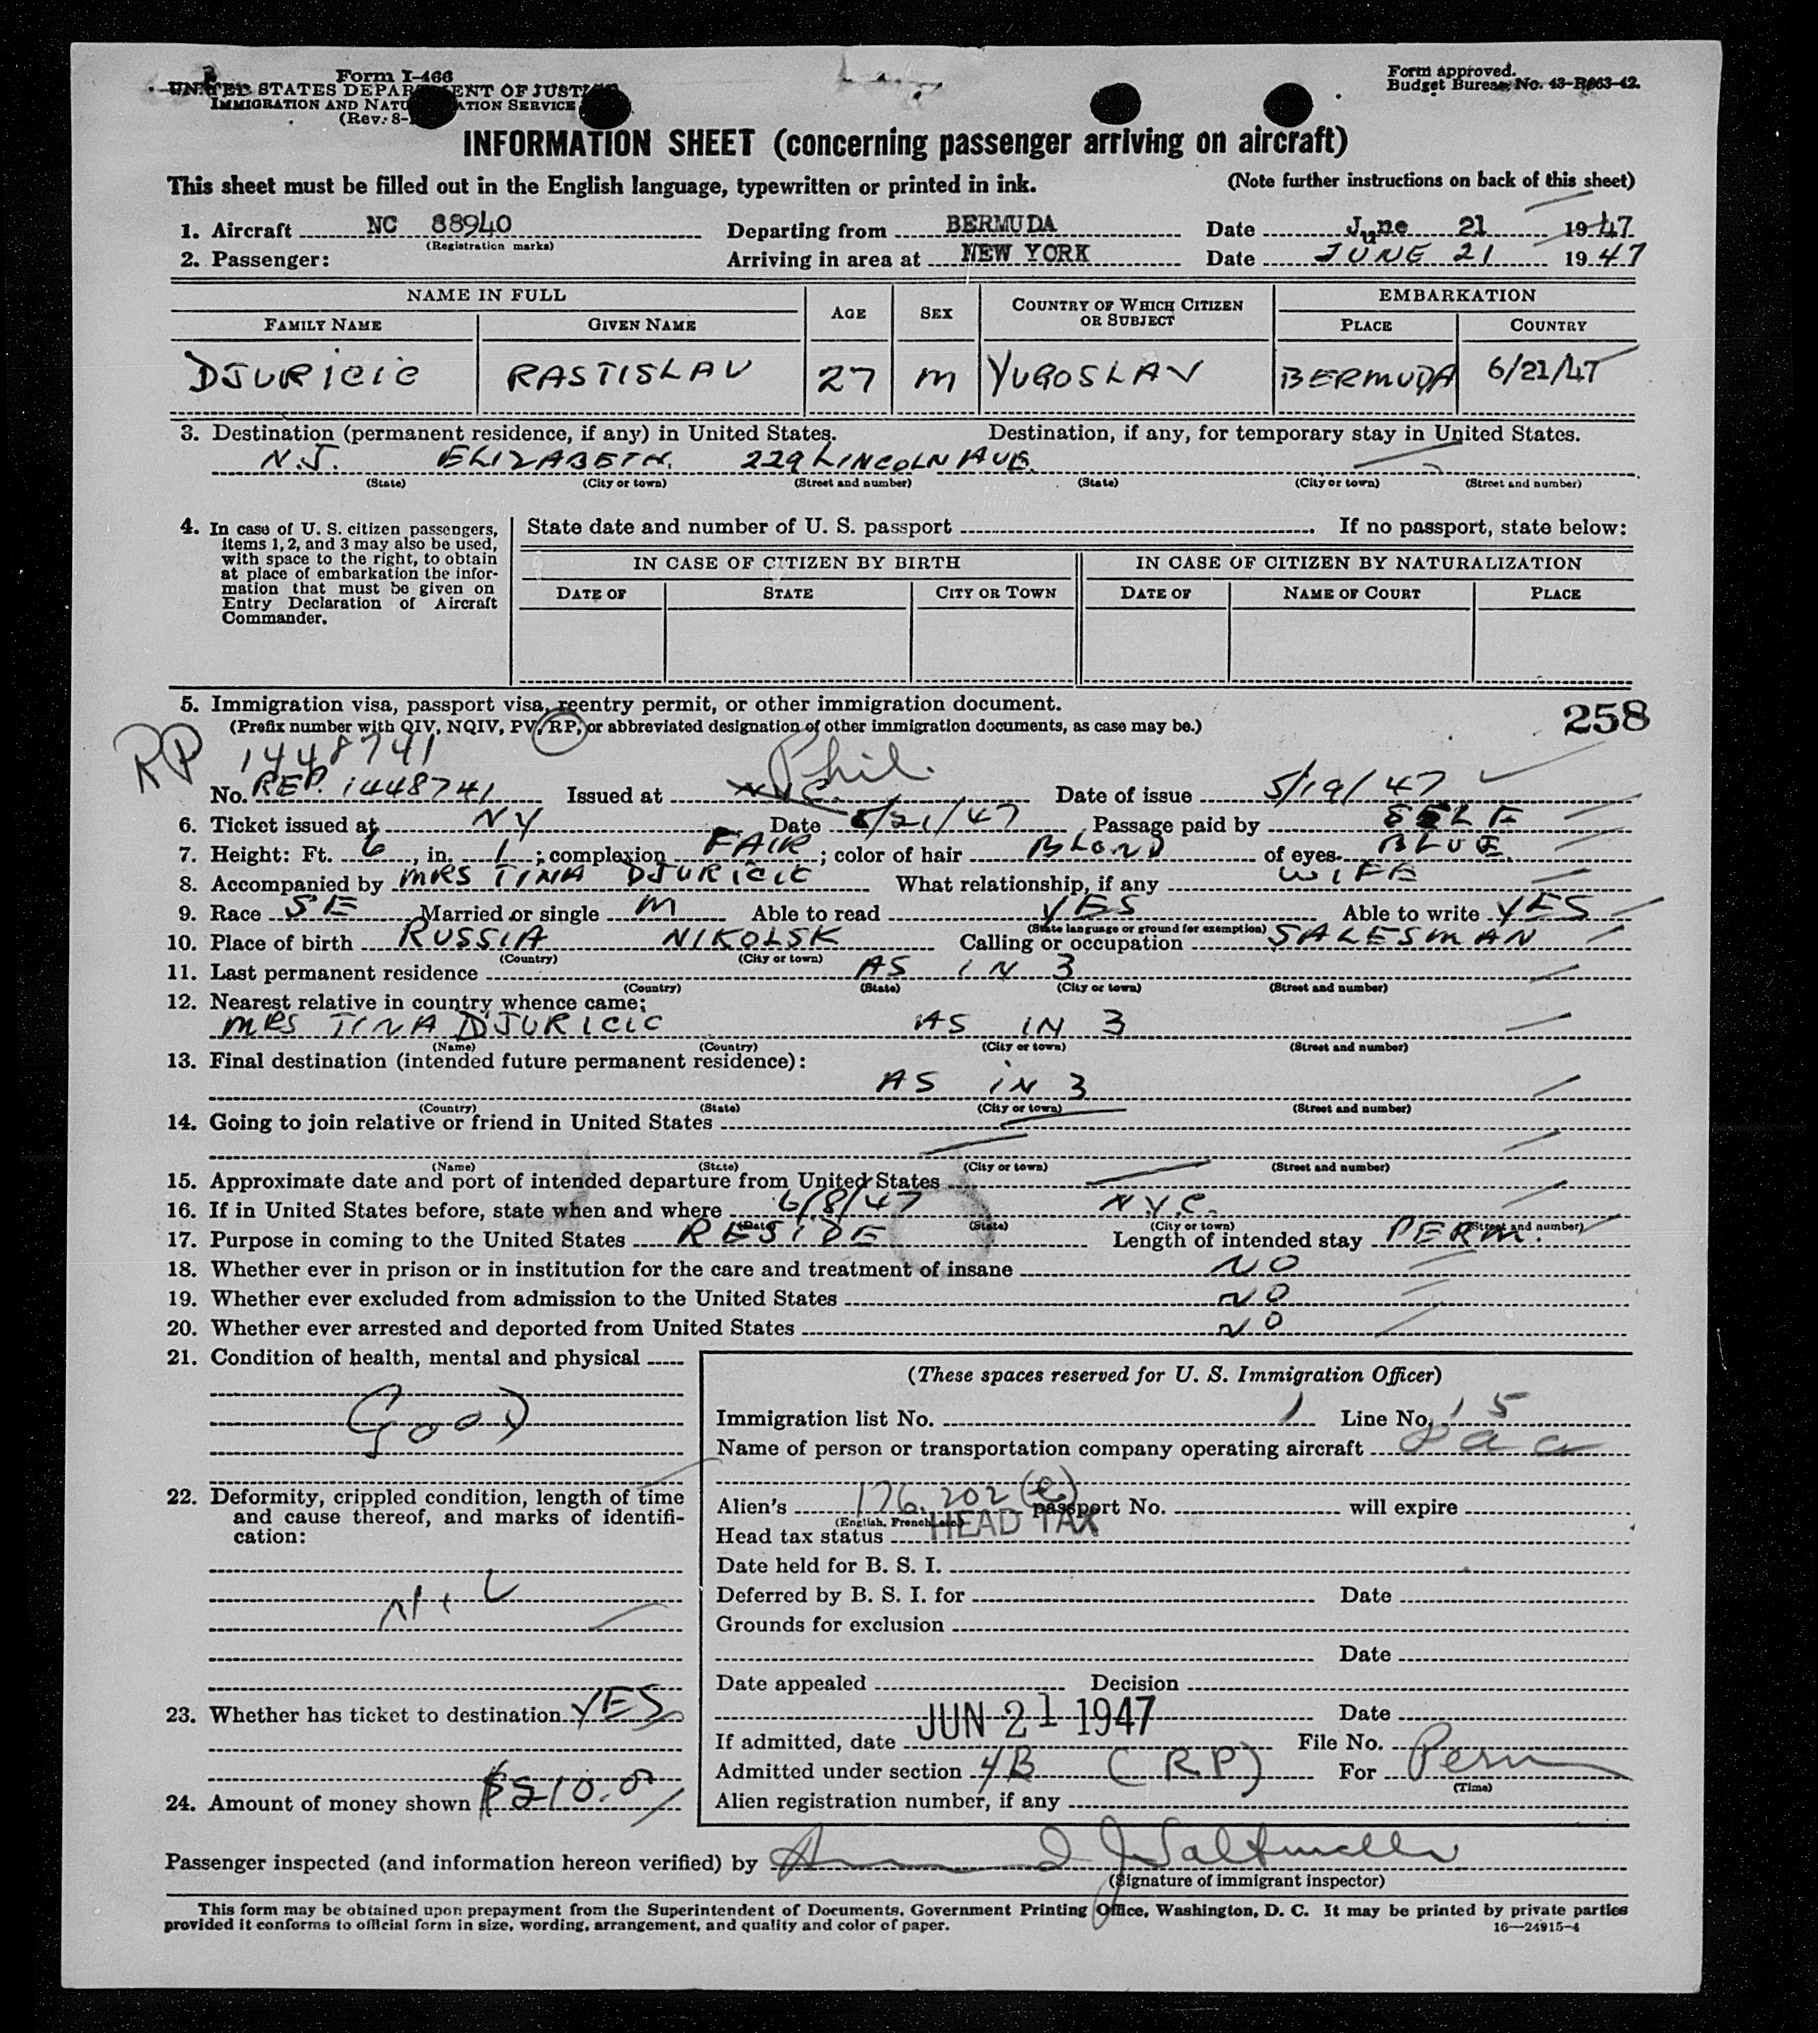 Form I-466
UNITED STATES DEPARTMENT OF JUSTICE
IMMIGRATION AND NATURALIZATION SERVICE
(Rev. 8-
Form approved.
Budget Bureau No. 43-R063-42.
INFORMATION SHEET (concerning passenger arriving on aircraft)
This sheet must be filled out in the English language, typewritten or printed in ink. (Note further instructions on back of this sheet)
1. Aircraft NC 88940 Departing from BERMUDA Date June 21 1947
(Registration marks)
2. Passenger: Arriving in area at NEW YORK Date JUNE 21 1947
NAME IN FULL AGE SEX COUNTRY OF WHICH CITIZEN OR SUBJECT EMBARKATION
FAMILY NAME GIVEN NAME PLACE COUNTRY
DJURICIC RASTISLAV 27 M YUGOSLAV BERMUDA 6/21/47
3. Destination (permanent residence, if any) in United States. Destination, if any, for temporary stay in United States.
N.J. ELIZABETH. 229 LINCOLN AVE.
(State) (City or town) (Street and number) (State) (City or town) (Street and number)
4. In case of U. S. citizen passengers,
items 1, 2, and 3 may also be used,
with space to the right, to obtain
at place of embarkation the infor-
mation that must be given on
Entry Declaration of Aircraft
Commander.
State date and number of U. S. passport . If no passport, state below:
IN CASE OF CITIZEN BY BIRTH IN CASE OF CITIZEN BY NATURALIZATION
DATE OF STATE CITY OR TOWN DATE OF NAME OF COURT PLACE
5. Immigration visa, passport visa, reentry permit, or other immigration document.
258
(Prefix number with QIV, NQIV, PV, RP, or abbreviated designation of other immigration documents, as case may be.)
RP 1448741 Phil.
No. REP. 1448741 Issued at NYC. Date of issue 5/19/47
6. Ticket issued at NY Date 5/21/47 Passage paid by SELF
7. Height: Ft. 6, in. 1; complexion FAIR; color of hair BLOND of eyes BLUE.
8. Accompanied by MRS TINA DJURICIC What relationship, if any WIFE
9. Race SE Married or single M Able to read YES Able to write YES
(State language or ground for exemption)
10. Place of birth RUSSIA NIKOLSK Calling or occupation SALESMAN
(Country) (City or town)
11. Last permanent residence AS IN 3
(Country) (State) (City or town) (Street and number)
12. Nearest relative in country whence came:
MRS TINA DJURICIC AS IN 3
(Name) (Country) (City or town) (Street and number)
13. Final destination (intended future permanent residence):
AS IN 3
(Country) (State) (City or town) (Street and number)
14. Going to join relative or friend in United States
(Name) (State) (City or town) (Street and number)
15. Approximate date and port of intended departure from United States
16. If in United States before, state when and where 6/8/47 N.Y.C.
(Date) (State) (City or town) (Street and number)
17. Purpose in coming to the United States RESIDE Length of intended stay PERM.
18. Whether ever in prison or in institution for the care and treatment of insane NO
19. Whether ever excluded from admission to the United States NO
20. Whether ever arrested and deported from United States NO
21. Condition of health, mental and physical
GOOD
22. Deformity, crippled condition, length of time
and cause thereof, and marks of identifi-
cation:
NIL
23. Whether has ticket to destination YES
24. Amount of money shown $210.0
(These spaces reserved for U. S. Immigration Officer)
Immigration list No. 1 Line No. 15
Name of person or transportation company operating aircraft paa
Alien's 176.202(e) passport No. will expire
(English, French, etc.)
Head tax status HEAD TAX
Date held for B. S. I.
Deferred by B. S. I. for Date
Grounds for exclusion
Date
Date appealed Decision
Date
If admitted, date JUN 21 1947 File No.
Admitted under section 4B (RP) For Perm
(Time)
Alien registration number, if any
Passenger inspected (and information hereon verified) by
(Signature of immigrant inspector)
This form may be obtained upon prepayment from the Superintendent of Documents, Government Printing Office, Washington, D. C. It may be printed by private parties
provided it conforms to official form in size, wording, arrangement, and quality and color of paper. 16—24915-4